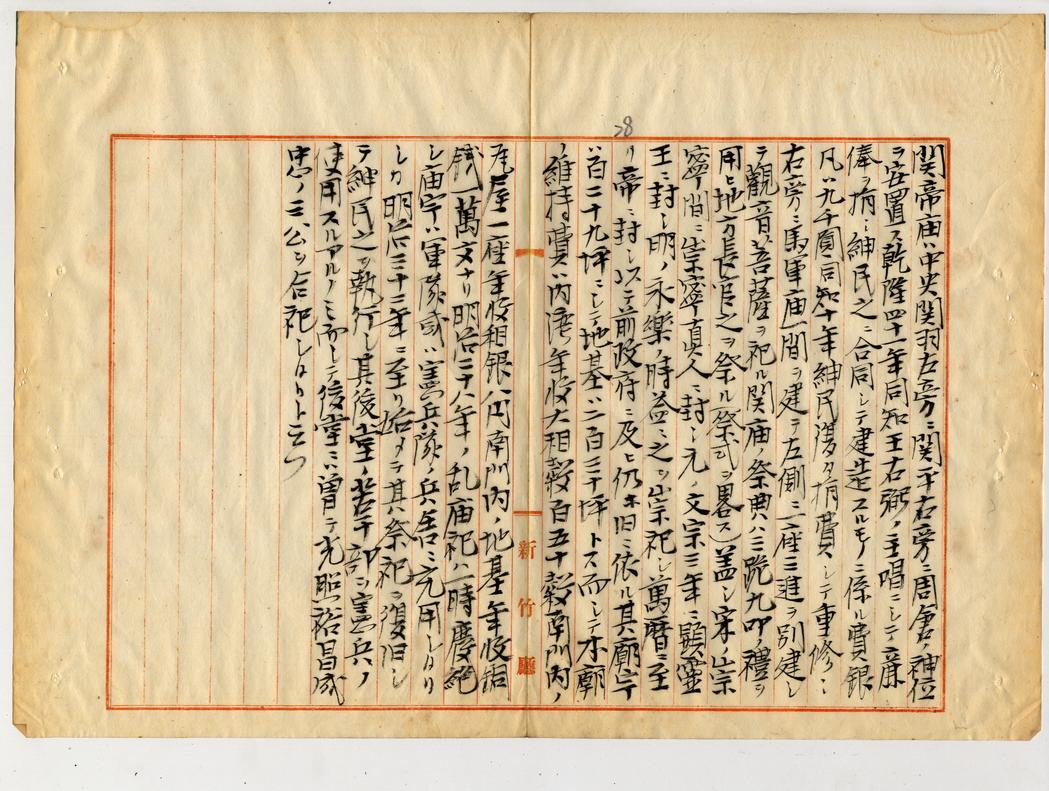 28
関帝庙ハ中央関羽左旁ニ関平右旁ニ周倉ノ神位
ヲ安置ス乾隆四十一年同知王右弼ノ主唱ニシテ廉
俸ヲ捐シ紳民之ニ合同シテ建造スルモノニ係ル費銀
凡ソ九千圓同知十年紳民復タ捐費シテ重修シ
右旁ニ馬軍庙一間ヲ建テ左側ニ一座三進ヲ別建シ
テ觀音菩薩ヲ祀ル関庙ノ祭典ハ三跪九叩ノ禮ヲ
用ヒ地方長官之ヲ祭ル祭式ヲ畧ス蓋シ宋ノ崇
寧間ニ崇寧真人ニ封シ元ノ文宗三年ニ顕靈
王ニ封シ明ノ永樂ノ時益々之ヲ崇祀シ萬暦ニ至
リ帝ニ封シ以テ前政府ニ及ヒ仍ホ旧ニ依ル其廟宇
ハ百二十九坪ニシテ地基ハ二百三十坪トス而シテ本廟
ノ維持費ハ内湾年收大租穀百五十穀南門内ノ
瓦屋二座年收租銀八円南門内ノ地基年收租
銭一萬文ナリ明治二十八年ノ乱庙祀ハ一時慶絶
シ庙宇ハ軍隊或ハ憲兵隊ノ兵舎ニ充用シタリ
シカ明治三十三年ニ至リ始メテ其祭祀ヲ復旧シ
テ紳民之ヲ執行シ其後堂ノ若干部ヲ憲兵ノ
使用スルアルノミ而シテ後堂ニハ曽テ光照裕昌成
忠ノ三公ヲ合祀シタリト云フ
新竹廳